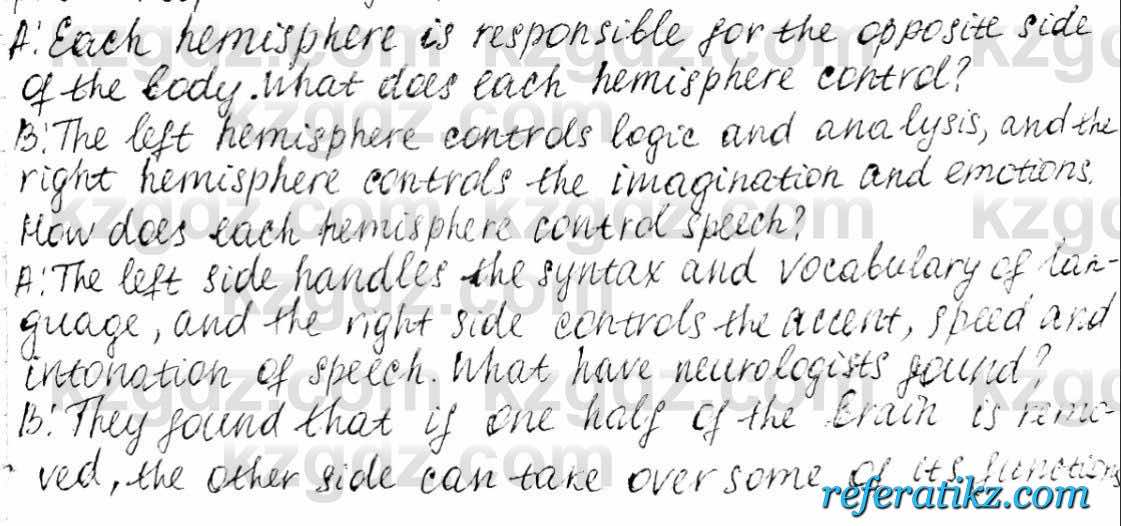 A: Each hemisphere is responsible for the opposite side
of the body. What does each hemisphere control?
B: The left hemisphere controls logic and analysis, and the
right hemisphere controls the imagination and emotions.
How does each hemisphere control speech?
A: The left side handles the syntax and vocabulary of lan-
guage, and the right side controls the accent, speed and
intonation of speech. What have neurologists found?
B: They found that if one half of the brain is remo-
ved, the other side can take over some of its functions
referatikz.com
kzgdz.com